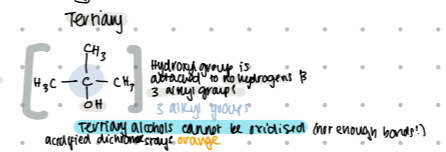 Tertiary
CH3
H3C — C — CH3
OH
Hydroxyl group is
attached to no hydrogens &
3 alkyl groups
3 alkyl groups
Tertiary alcohols cannot be oxidised (not enough bonds!)
acidified dichromate stays orange